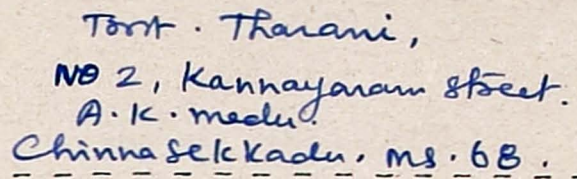 Tmt. Tharani,
No 2, Kannayaram street.
A.K. medu.
Chinna sekkadu. ms. 68.